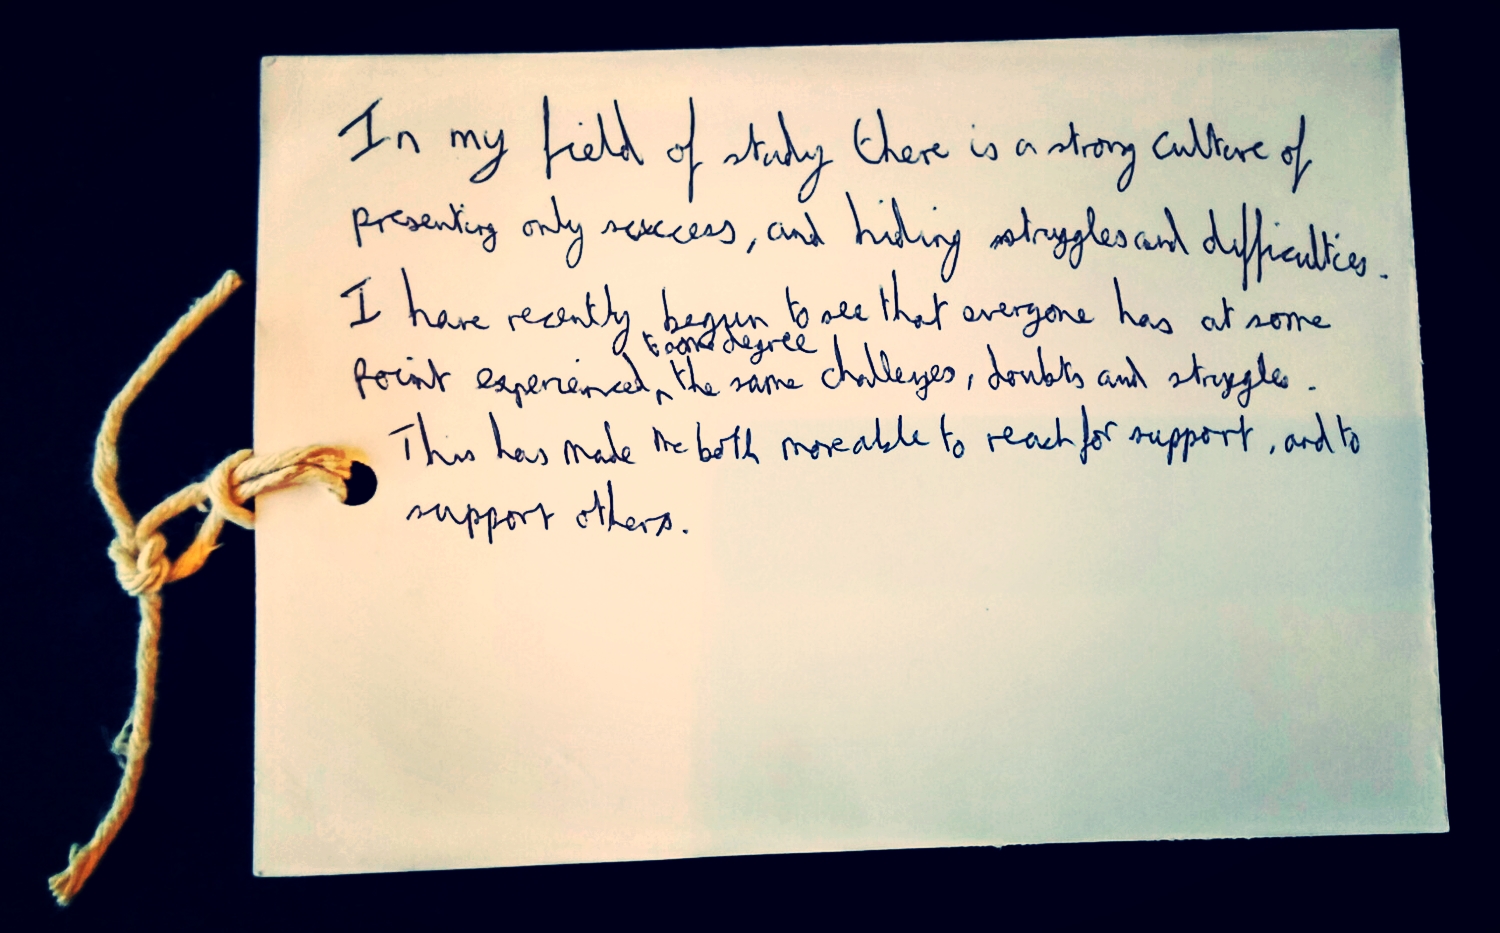 In my field of study there is a strong culture of
presenting only success, and hiding struggles and difficulties.
I have recently begun to see that everyone has at some
point experienced, to some degree the same challenges, doubts and struggles.
This has made me both more able to reach for support, and to
support others.